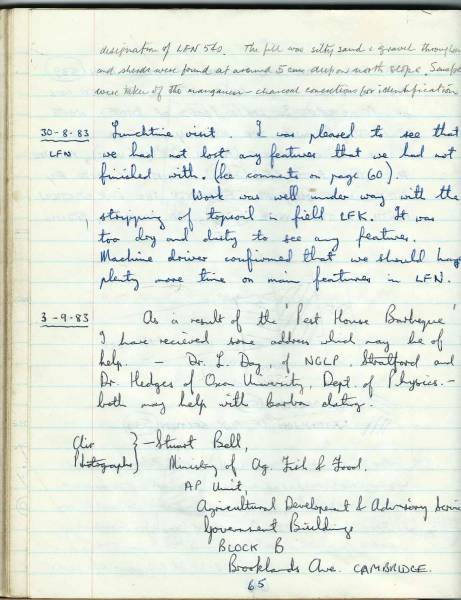 designation of LFN 540. The fill was silty sand & gravel throughout
and sherds were found at around 5cms deep on north slope. Samples
were taken of the manganese - charcoal concretions for identification
30-8-83 Lunchtime visit. I was pleased to see that
LFN we had not lost any features that we had not
finished with. (See comments on page 60).
Work was well under way with the
stripping of topsoil in field LFK. It was
too dry and dusty to see any features.
Machine driver confirmed that we should have
plenty more time on main features in LFN.
3-9-83 As a result of the 'Pest House Barbeque'
I have recieved some address which may be of
help. - Dr. L. Day, of NGLP, Stratford and
Dr. Hedges of Oxon University, Dept. of Physics. -
both may help with carbon dating.
Air Photographs } - Stuart Bell,
Ministry of Ag. Fish & Food.
AP Unit,
Agricultural Development & Advisory Service
Government Buildings
BLOCK B
Brooklands Ave. CAMBRIDGE.
65